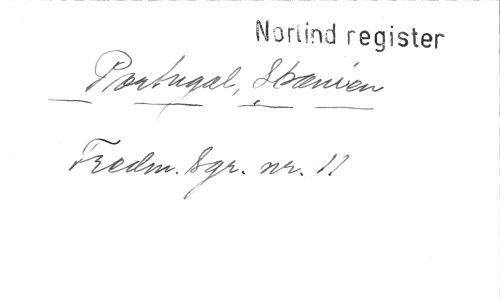 Norlind register
Portugal, Spanien
Fredm. Sgr. nr. 11